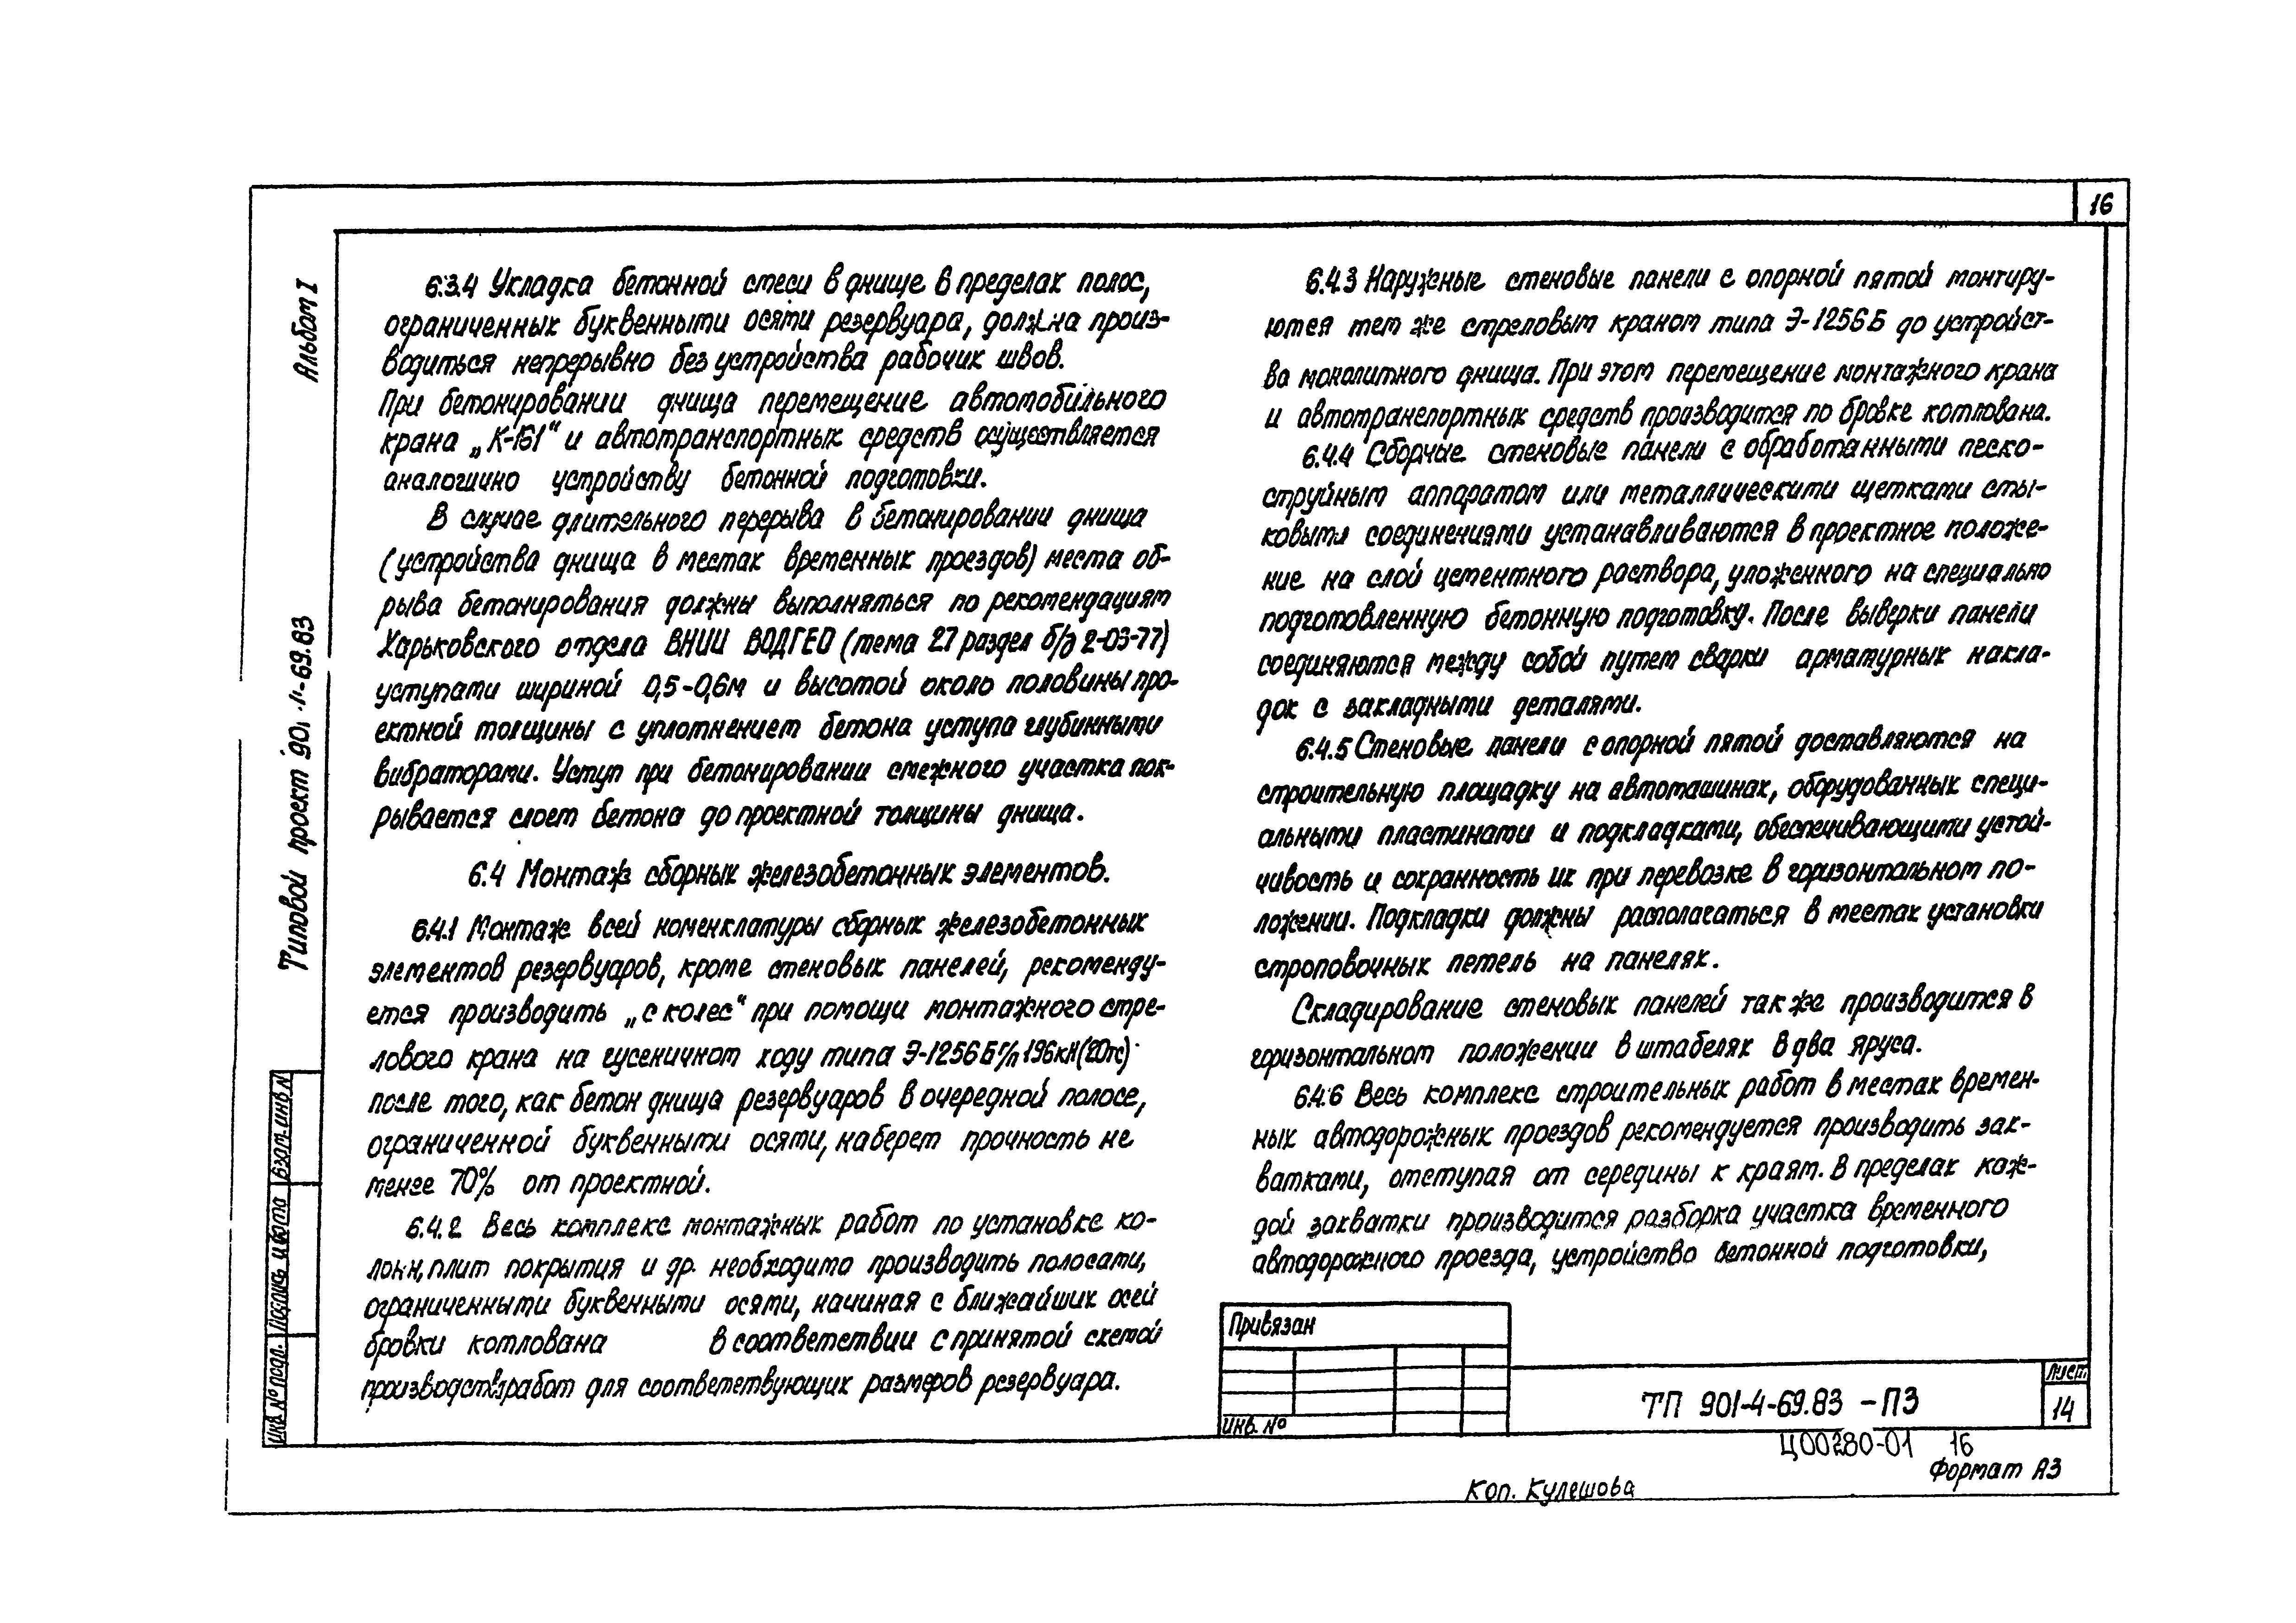 16
Альбом I
Типовой проект 901-4-69.83
6.3.4 Укладка бетонной смеси в днище в пределах полос,
ограниченных буквенными осями резервуара, должна произ-
водиться непрерывно без устройства рабочих швов.
При бетонировании днища перемещение автомобильного
крана „К-161" и автотранспортных средств осуществляется
аналогично устройству бетонной подготовки.
В случае длительного перерыва в бетонировании днища
(устройства днища в местах временных проездов) места об-
рыва бетонирования должны выполняться по рекомендациям
Харьковского отдела ВНИИ ВОДГЕО (тема 27 раздел б/д 2-03-77)
уступами шириной 0,5-0,6м и высотой около половины про-
ектной толщины с уплотнением бетона уступа глубинными
вибраторами. Уступ при бетонировании смежного участка пок-
рывается слоем бетона до проектной толщины днища.
6.4 Монтаж сборных железобетонных элементов.
6.4.1 Монтаж всей номенклатуры сборных железобетонных
элементов резервуаров, кроме стеновых панелей, рекоменду-
ется производить „с колес" при помощи монтажного стре-
лового крана на гусеничном ходу типа Э-1256Б г/п 196кН(20тс)
после того, как бетон днища резервуаров в очередной полосе,
ограниченной буквенными осями, наберет прочность не
менее 70% от проектной.
6.4.2 Весь комплекс монтажных работ по установке ко-
лонн, плит покрытия и др. необходимо производить полосами,
ограниченными буквенными осями, начиная с ближайших осей
бровки котлована в соответствии с принятой схемой
производства работ для соответствующих размеров резервуара.
6.4.3 Наружные стеновые панели с опорной пятой монтиру-
ются тем же стреловым краном типа Э-1256Б до устройст-
ва монолитного днища. При этом перемещение монтажного крана
и автотранспортных средств производится по бровке котлована.
6.4.4 Сборные стеновые панели с обработанными песко-
струйным аппаратом или металлическими щетками сты-
ковыми соединениями устанавливаются в проектное положе-
ние на слой цементного раствора, уложенного на специально
подготовленную бетонную подготовку. После выверки панели
соединяются между собой путем сварки арматурных накла-
док с закладными деталями.
6.4.5 Стеновые панели с опорной пятой доставляются на
строительную площадку на автомашинах, оборудованных специ-
альными пластинами и подкладками, обеспечивающими устой-
чивость и сохранность их при перевозке в горизонтальном по-
ложении. Подкладки должны располагаться в местах установки
строповочных петель на панелях.
Складирование стеновых панелей так же производится в
горизонтальном положении в штабелях в два яруса.
6.4.6 Весь комплекс строительных работ в местах времен-
ных автодорожных проездов рекомендуется производить зах-
ватками, отступая от середины к краям. В пределах каж-
дой захватки производится разборка участка временного
автодорожного проезда, устройство бетонной подготовки,
Взам. инв N
Подпись и дата
Инв. № подл.
Привязан
Инв. №
ТП 901-4-69.83 -ПЗ
Лист
14
Ц00280-01 16
Формат А3
Коп. Кулешова